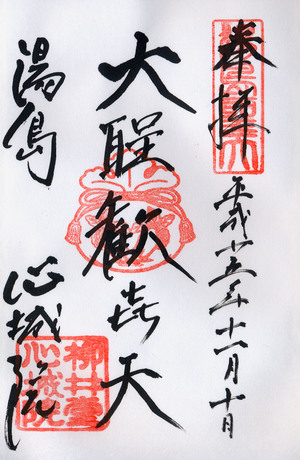 奉拝
平成廿五年十二月十日
大聖歓喜天
湯島
心城院
柳井堂
心城院